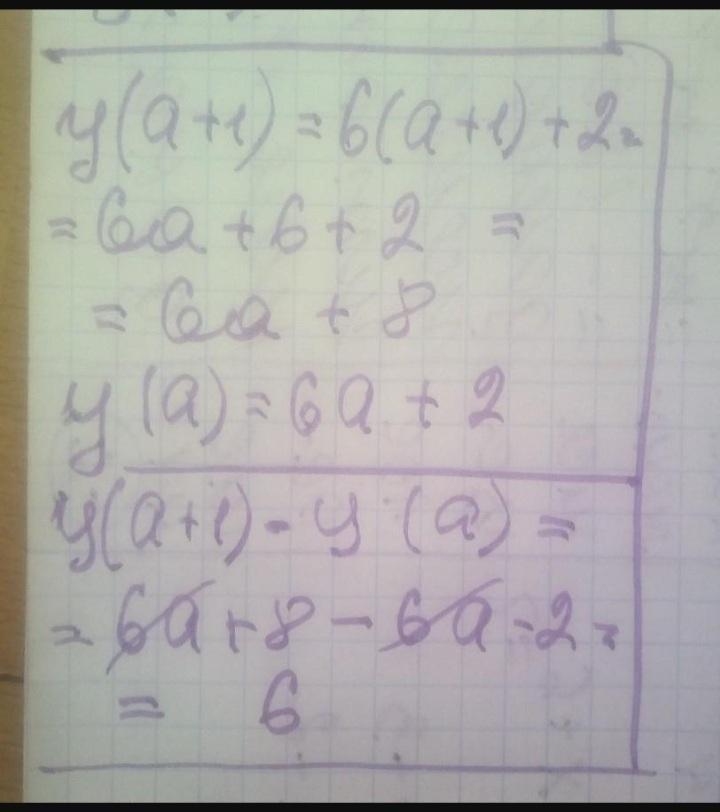 y(a+1)=6(a+1)+2=
=6a+6+2 =
= 6a + 8
y(a)=6a+2
y(a+1)-y(a)=
=6a+8-6a-2=
= 6